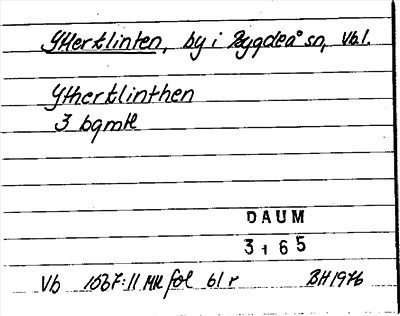 Ytterklinten, by i Bygdeå sn, Vb.l.
Ythertlinthen
3 bqmtl
DAUM
3165
Vb 1567:11 MK fol 61 r BH 1976